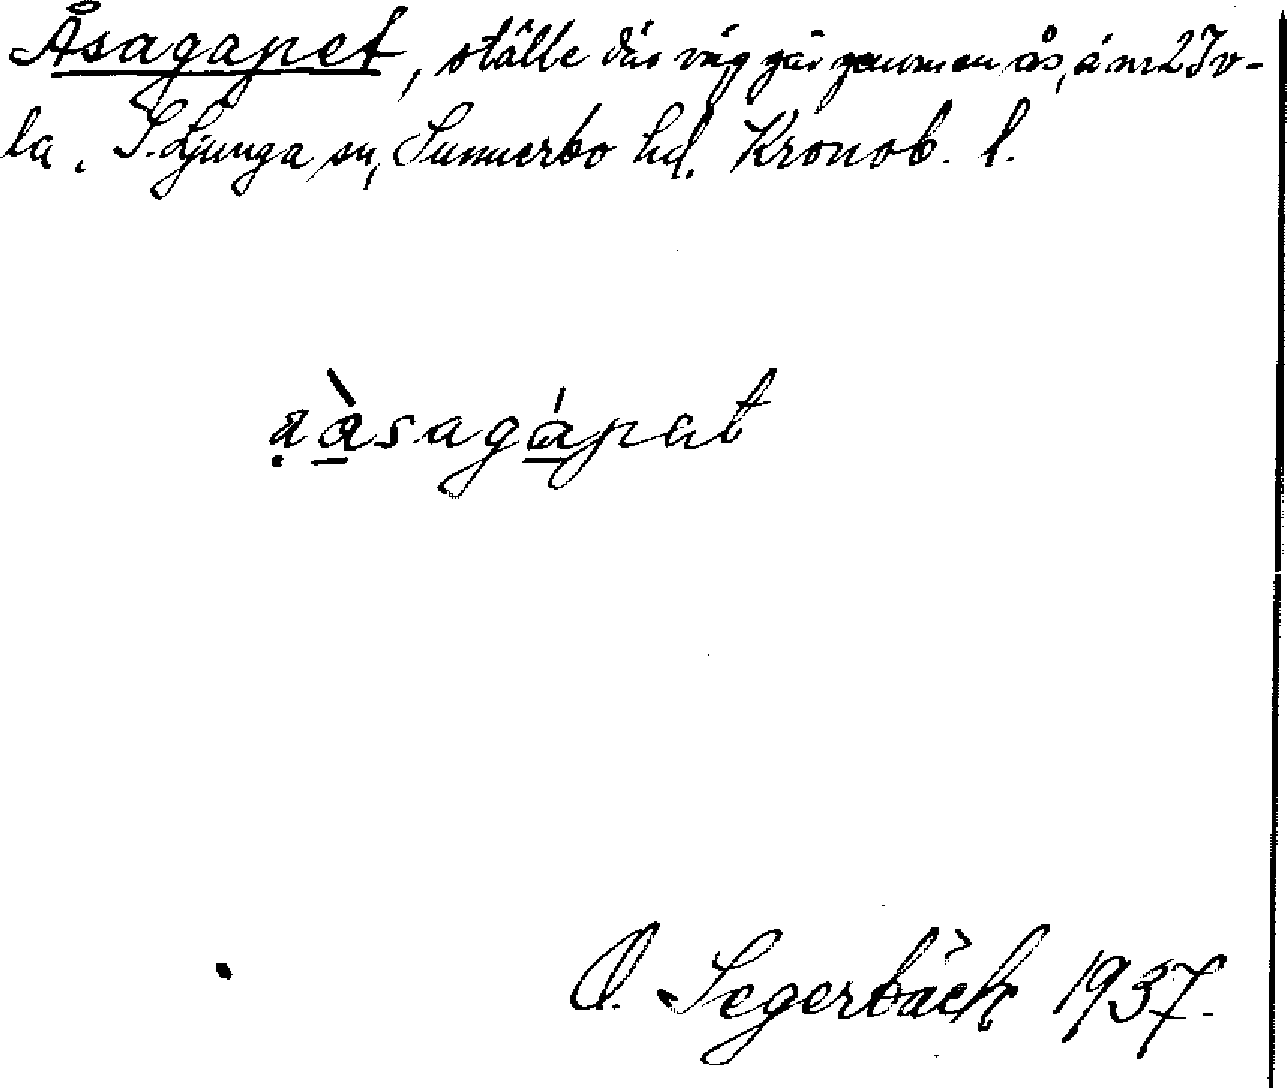 Åsagapet, ställe där väg går genom en ås, å nr 2 Iv-
la. S. Ljunga sn, Sunnerbo hd. Kronob. l.
a̤àsagápat
O. Segerbäck 1937.